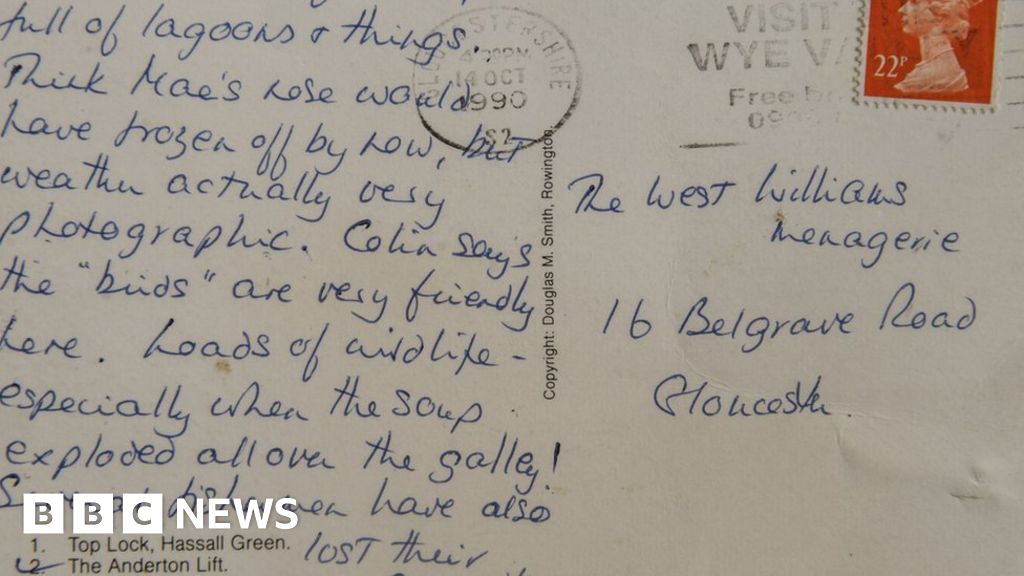 full of lagoons & things.
Think Mae's nose would
have frozen off by now, but
weather actually very
photographic. Colin says
the "birds" are very friendly
here. Loads of wildlife -
especially when the soup
exploded all over the galley!
have also
lost their
1. Top Lock, Hassall Green.
2. The Anderton Lift.
Copyright: Douglas M. Smith, Rowington.
GLOUCESTERSHIRE
14 OCT
1990
VISIT
WYE
Free
22P
The West Williams
Menagerie
16 Belgrave Road
Gloucester.
BBC NEWS